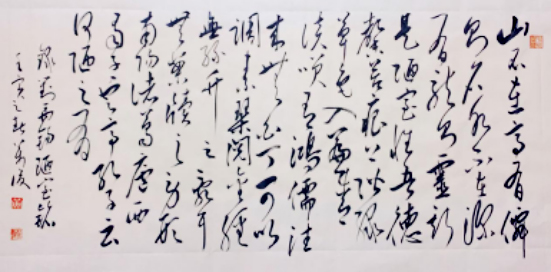 山不在高有僊
则名水不在深
有龙则灵斯
是陋室惟吾德
馨苔痕上阶绿
草色入簾青
谈笑有鸿儒往
来无白丁可以
调素琴阅金经
無丝竹之乱耳
无案牍之劳形
南阳诸葛庐西
蜀子云亭孔子云
何陋之有
録刘禹锡陋室铭
壬寅之秋